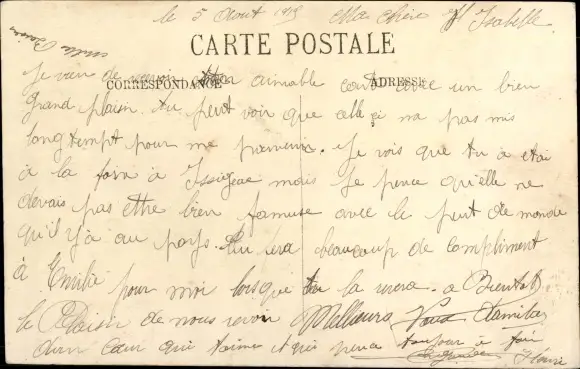 le 5 Août 1919 Ma chère Isabelle
mille Baisers
CARTE POSTALE
CORRESPONDANCE ADRESSE
Je vien de aimable carte avec un bien
Grand plaisir. tu peut voir que celle çi na pas mis
longtempt pour me parvenir. Je vois que tu à étai
à la foire à Issigeac mais Je pence qu'elle ne
devais pas être bien fameuse avec le peut de monde
qu'il y'à au pays. Tu fera beaucoup de compliment
à Emilie pour moi lorsque tu la verra. à Bientot
le Plaisir de nous revoir Meilleurs
dun Cœur qui taime et qui pence toujour à toi
Henri